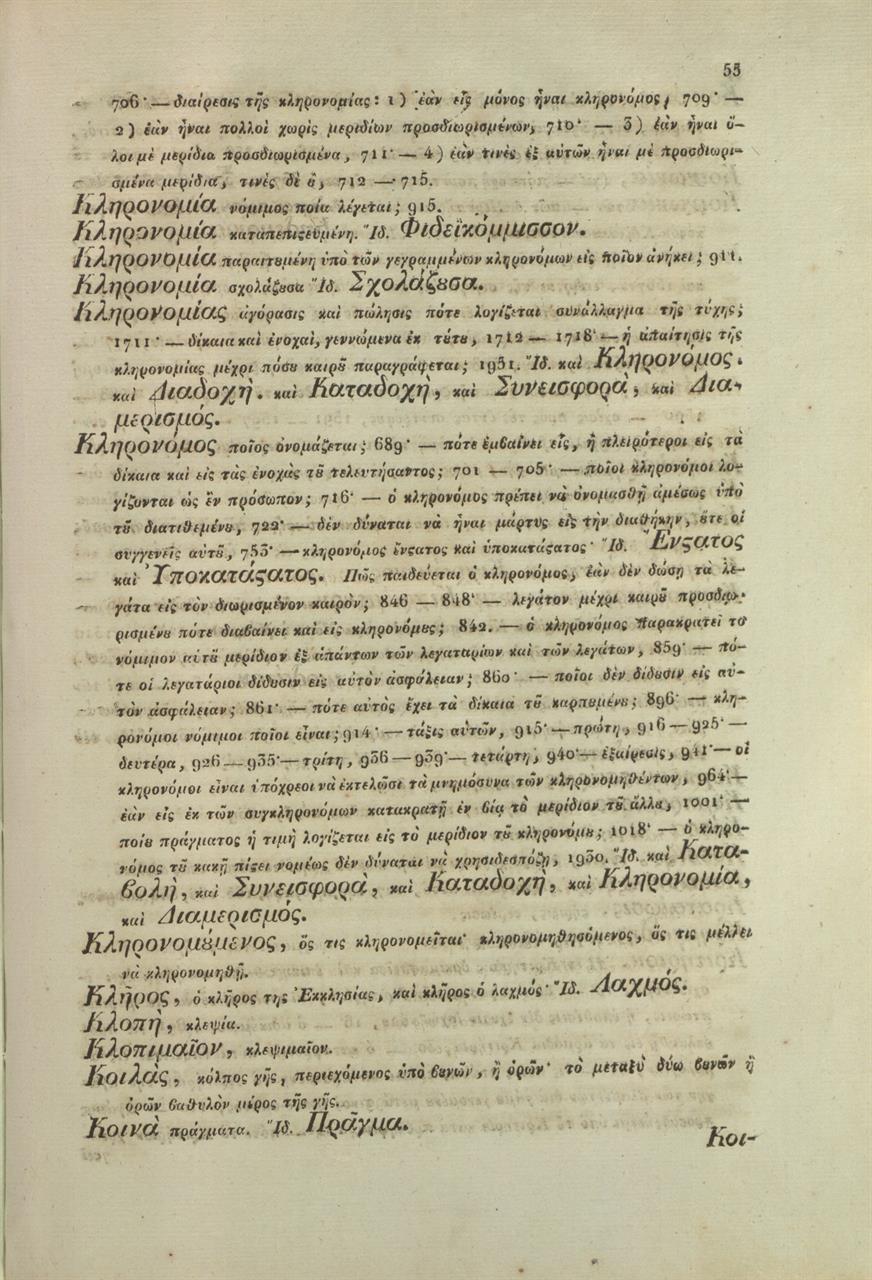 55
706· — διαίρεσις τῆς κληρονομίας: 1) ἐὰν εἷς μόνος ἦναι κληρονόμος, 709· —
2) ἐὰν ἦναι πολλοὶ χωρὶς μεριδίων προσδιωρισμένων, 710· — 3) ἐὰν ἦναι ὅ-
λοι μὲ μερίδια προσδιωρισμένα, 711· — 4) ἐὰν τινὲς ἐξ αὐτῶν ἦναι μὲ προσδιωρι-
σμένα μερίδια, τινὲς δὲ ȣ̓, 712 — 715.
Κληρονομία νόμιμος ποία λέγεται; 915.
Κληρονομία καταπεπιϛευμένη. Ἴδ. Φιδεϊκόμμισσον.
Κληρονομία παραιτȣμένη ὑπὸ τῶν γεγραμμένων κληρονόμων εἰς ποῖον ἀνήκει; 911.
Κληρονομία σχολάζȣσα Ἴδ. Σχολάζȣσα.
Κληρονομίας ἀγόρασις καὶ πώλησις πότε λογίζεται συνάλλαγμα τῆς τύχης;
1711· — δίκαια καὶ ἐνοχαὶ, γεννώμενα ἐκ τȣ́τȣ, 1712 — 1718· — ἡ ἀπαίτησις τῆς
κληρονομίας μέχρι πόσȣ καιρȣ͂ παραγράφεται; 1951. Ἴδ. καὶ Κληρονόμος.
καὶ Διαδοχὴ. καὶ Καταδοχὴ, καὶ Συνεισφορὰ, καὶ Δια-
μερισμός.
Κληρονόμος ποῖος ὀνομάζεται; 689· — πότε ἐμβαίνει εἷς, ἢ πλειρότεροι εἰς τὰ
δίκαια καὶ εἰς τὰς ἐνοχὰς τȣ͂ τελευτήσαντος; 701 — 705· — ποῖοι κληρονόμοι λο-
γίζονται ὡς ἓν πρόσωπον; 716· — ὁ κληρονόμος πρέπει νὰ ὀνομασθῇ ἀμέσως ὑπὸ
τȣ͂ διατιθεμένȣ, 722· — δὲν δύναται νὰ ἦναι μάρτυς εἰς τὴν διαθήκην, ȣ̓́τε οἱ
συγγενεῖς αὐτȣ͂, 753· — κληρονόμος ἔνϛατος καὶ ὑποκατάϛατος· Ἴδ. Ἔνϛατος
καὶ Ὑποκατάϛατος. Πῶς παιδεύεται ὁ κληρονόμος, ἐὰν δὲν δώσῃ τὰ λε-
γάτα εἰς τὸν διωρισμένον καιρόν; 846 — 848· — λεγάτον μέχρι καιρȣ͂ προσδιω-
ρισμένȣ πότε διαβαίνει καὶ εἰς κληρονόμȣς; 842. — ὁ κληρονόμος παρακρατεῖ τὸ
νόμιμον αὑτȣ͂ μερίδιον ἐξ ἁπάντων τῶν λεγαταρίων καὶ τῶν λεγάτων, 859· — πό-
τε οἱ λεγατάριοι δίδȣσιν εἰς αὐτὸν ἀσφάλειαν; 860· — ποῖοι δὲν δίδȣσιν εἰς αὐ-
τὸν ἀσφάλειαν; 861· — πότε αὐτὸς ἔχει τὰ δίκαια τȣ͂ καρπȣμένȣ; 896· — κλη-
ρονόμοι νόμιμοι ποῖοι εἶναι; 914· — τάξις αὐτῶν, 915· — πρώτη, 916 — 925· —
δευτέρα, 926 — 935· — τρίτη, 936 — 939· — τετάρτη, 940· — ἐξαίρεσις, 941· — οἱ
κληρονόμοι εἶναι ὑπόχρεοι νὰ ἐκτελῶσι τὰ μνημόσυνα τῶν κληρονομηθέντων, 964· —
ἐὰν εἷς ἐκ τῶν συγκληρονόμων κατακρατῇ ἐν βίᾳ τὸ μερίδιον τȣ͂ ἄλλȣ, 1001· —
ποίȣ πράγματος ἡ τιμὴ λογίζεται εἰς τὸ μερίδιον τȣ͂ κληρονόμȣ; 1018· — ὁ κληρο-
νόμος τȣ͂ κακῇ πίϛει νομέως δὲν δύναται νὰ χρησιδεσπόζῃ, 1930. Ἴδ. καὶ Κατα-
βολὴ, καὶ Συνεισφορὰ, καὶ Καταδοχὴ, καὶ Κληρονομία,
καὶ Διαμερισμός.
Κληρονομȣ́μενος, ὅς τις κληρονομεῖται· κληρονομηθησόμενος, ὅς τις μέλλει
νὰ κληρονομηθῇ.
Κλῆρος, ὁ κλῆρος της Ἐκκλησίας, καὶ κλῆρος ὁ λαχμός· Ἴδ. Λαχμός.
Κλοπὴ, κλεψία.
Κλοπιμαῖον, κλεψιμαῖον.
Κοιλὰς, κόλπος γῆς, περιεχόμενος ὑπὸ βȣνῶν, ἢ ὀρῶν· τὸ μεταξὺ δύω βȣνῶν ἢ
ὀρῶν βαθυλὸν μέρος τῆς γῆς.
Κοινὰ πράγματα. Ἴδ. Πρᾶγμα.
Κοι-